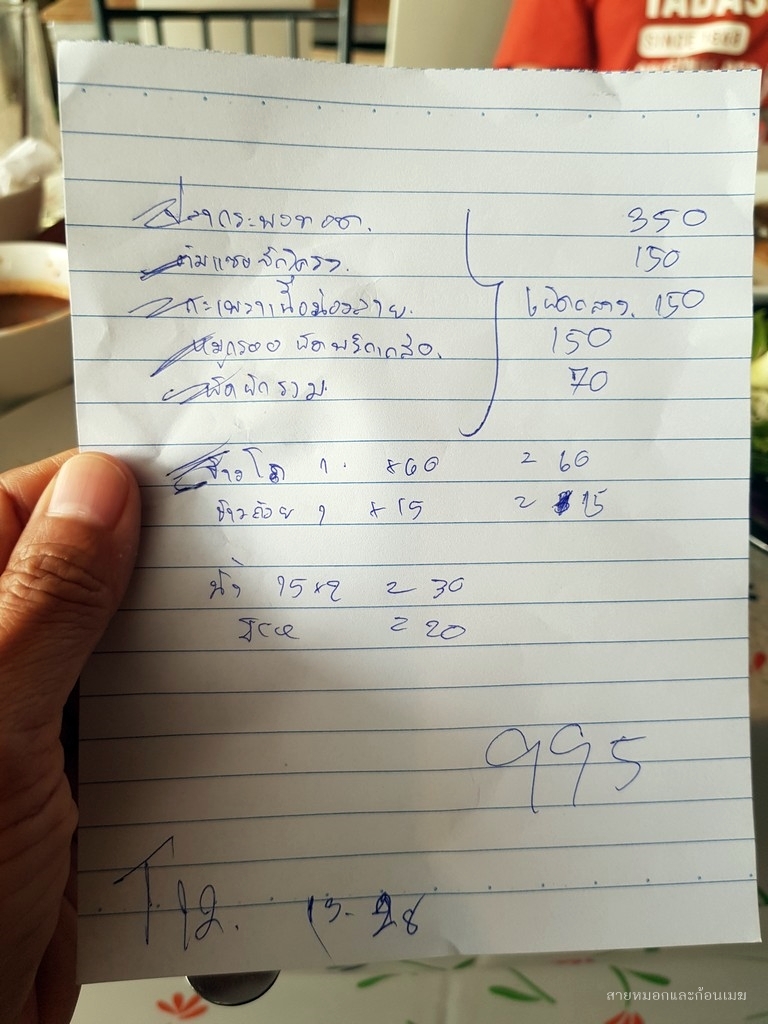 TABAS
SINCE 1948
ปลากระพงทอด. 350
ต้มแซ่บ 150
กะเพราเนื้อน่องลาย. เผ็ดกลาง. 150
หมูกรอบ ผัดพริกเกลือ. 150
ผัดผักรวม 70
ข้าวโถ 1. x60 = 60
ข้าวถ้วย 1 x15 = 15
น้ำ 15x2 = 30
= 20
995
T.12. 13-28
สายหมอกและก้อนเมฆ